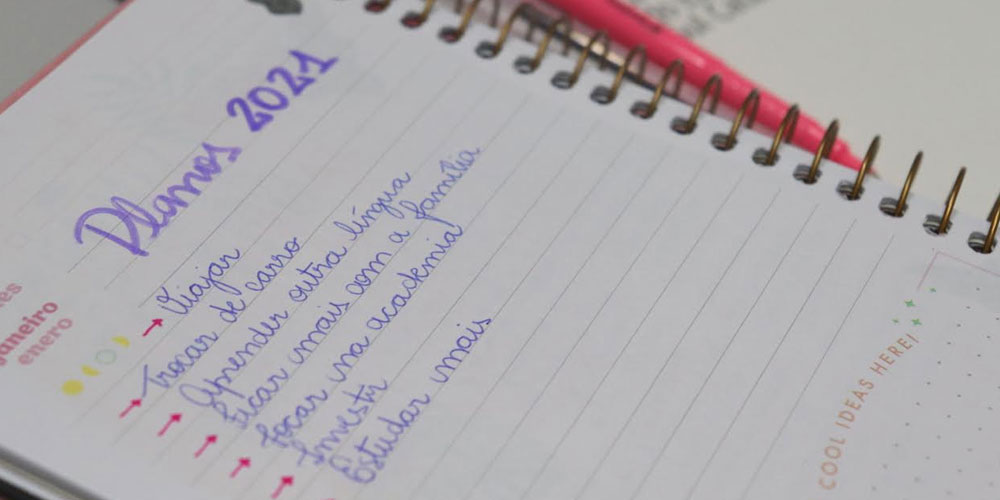 Planos 2021
→ Viajar
→ Trocar de carro
→ Aprender outra língua
→ Ficar mais com a família
→ Focar na academia
→ Investir
Estudar mais
janeiro
enero
COOL IDEAS HERE!